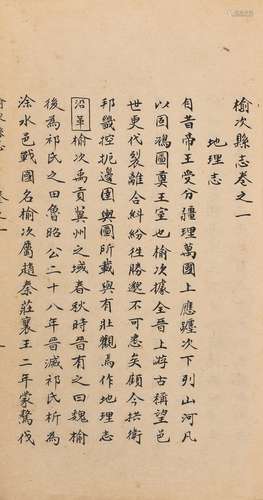 榆次縣志卷之一
地理志
自昔帝王受分疆理萬國上應躔次下列山河凡
以固鴻圖奠王室也榆次據全晉上游古稱望邑
世更代製離合糾紛往勝邈不可悉矣顧今拱衛
邦畿控扼邊圉輿圖所載與有壯觀焉作地理志
沿革 榆次禹貢冀州之域春秋時晉有之曰魏榆
後為祁氏之田魯昭公二十八年晉滅祁氏析為
涂水邑戰國名榆次屬趙秦莊襄王二年蒙驁伐